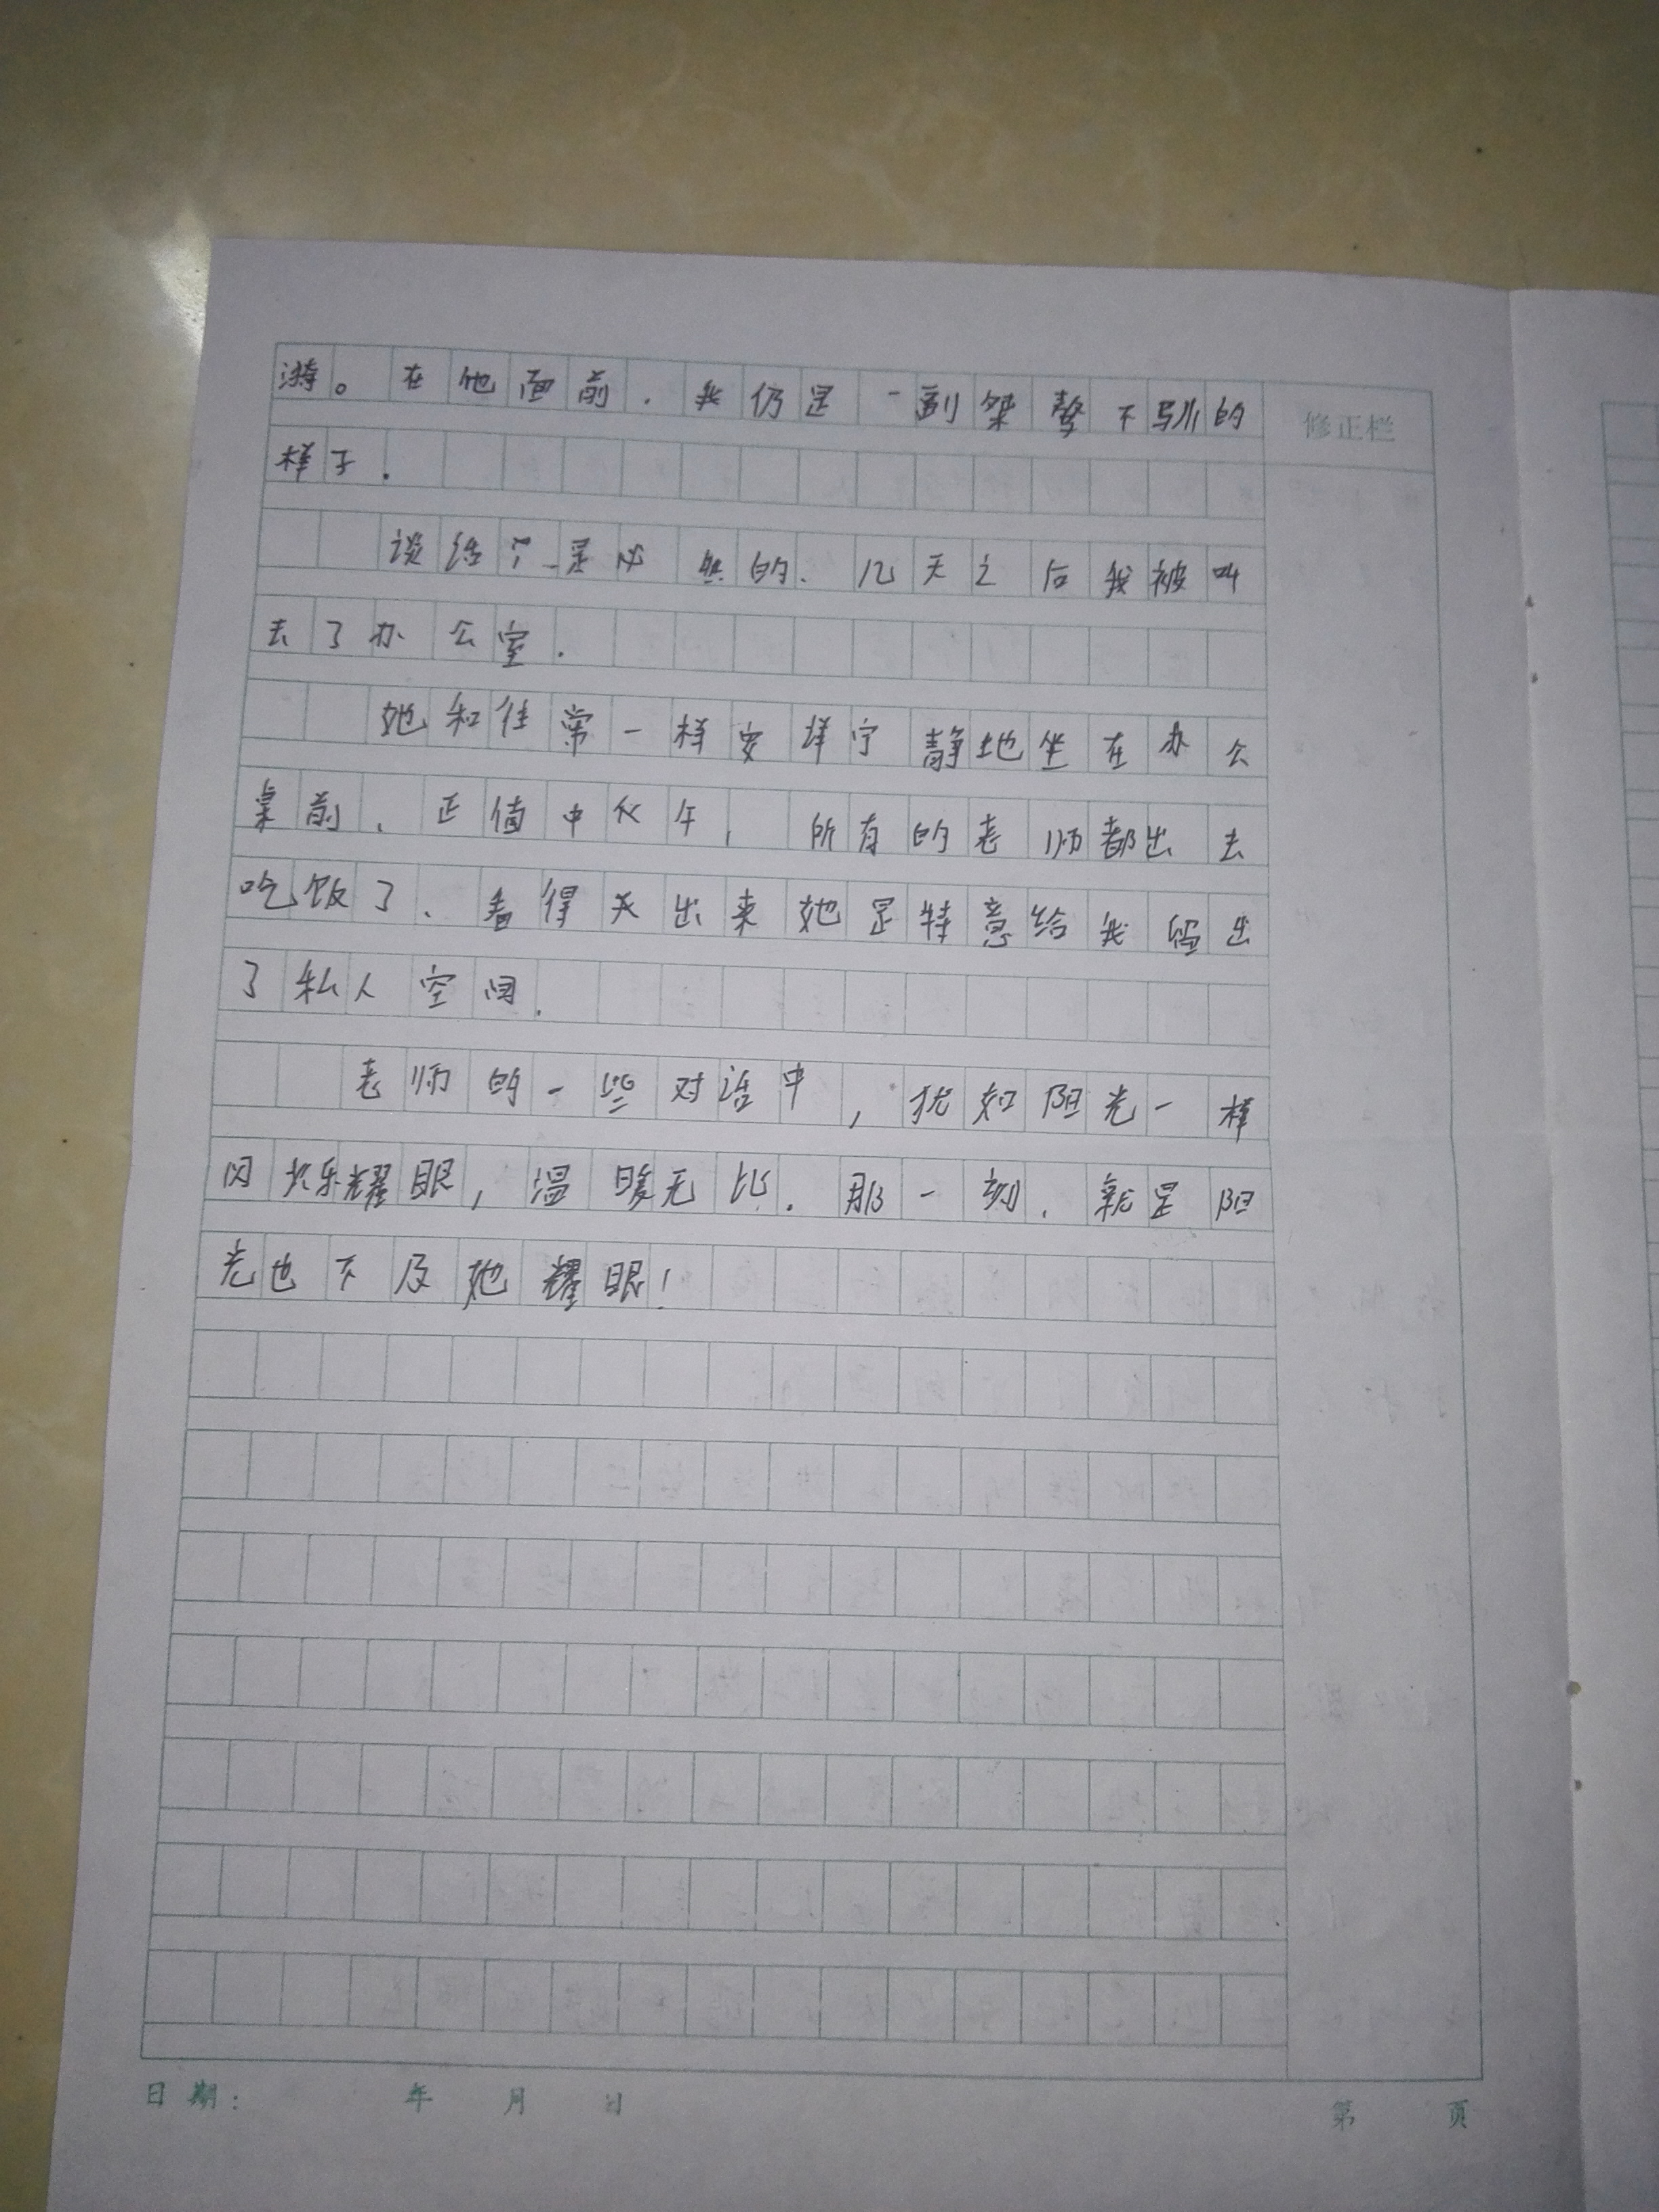 游。在他面前.我仍是一副桀骜不驯的
修正栏
样子.
谈话是必然的.几天之后我被叫
去了办公室.
她和往常一样安详宁静地坐在办公
桌前、正值中午,所有的老师都出去
吃饭了、看得出来她是特意给我留出
了私人空间.
老师的一些对话中,犹如阳光一样
闪烁耀眼,温暖无比.那一刻.就是阳
光也不及她耀眼!
日期: 年 月 日
第 页